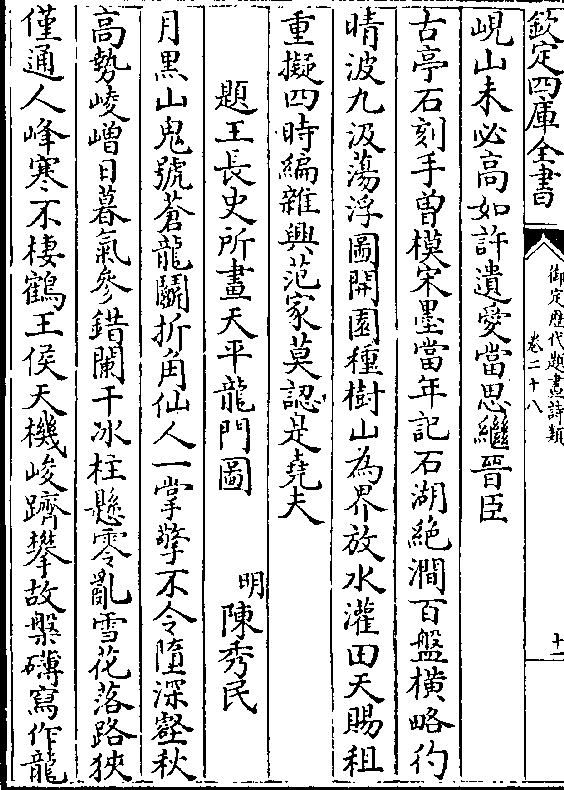 欽定四庫全書
御定歷代題畫詩類
卷二十八
十一
峴山未必高如許遺愛當思繼晉臣
古亭石刻手曽模宋墨當年記石湖絶澗百盤横略彴
晴波九汲蕩浮圖開園種樹山為界放水灌田天賜租
重擬四時編雜興范家莫認是堯夫
題王長史所畫天平龍門圖
明陳秀民
月黒山鬼號蒼龍鬬折角仙人一掌擎不令墮深壑秋
高勢崚嶒日暮氣參錯闌干冰柱懸零亂雪花落路狹
僅通人峰寒不棲鶴王侯天機峻躋攀故槃礴寫作龍